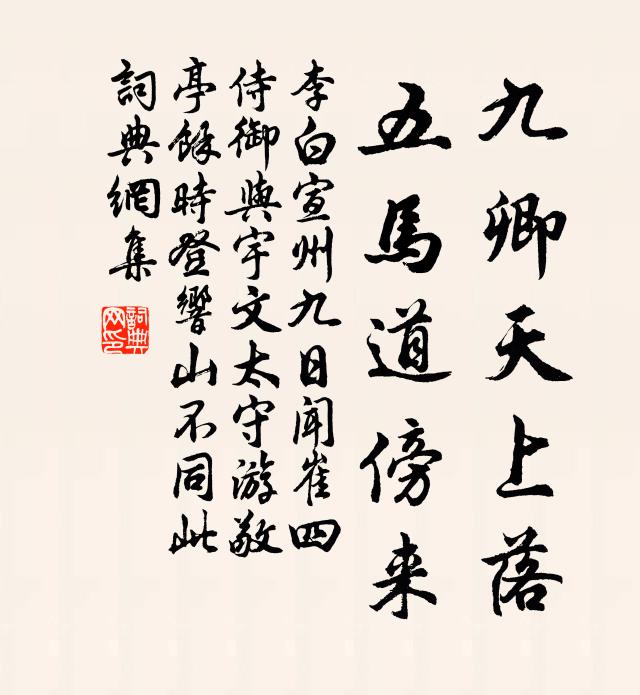 九卿天上落
五馬道傍来
李白宣州九日聞崔四
侍御與宇文太守游敬
亭餘時登響山不同此
詞典網集
詞典
网印